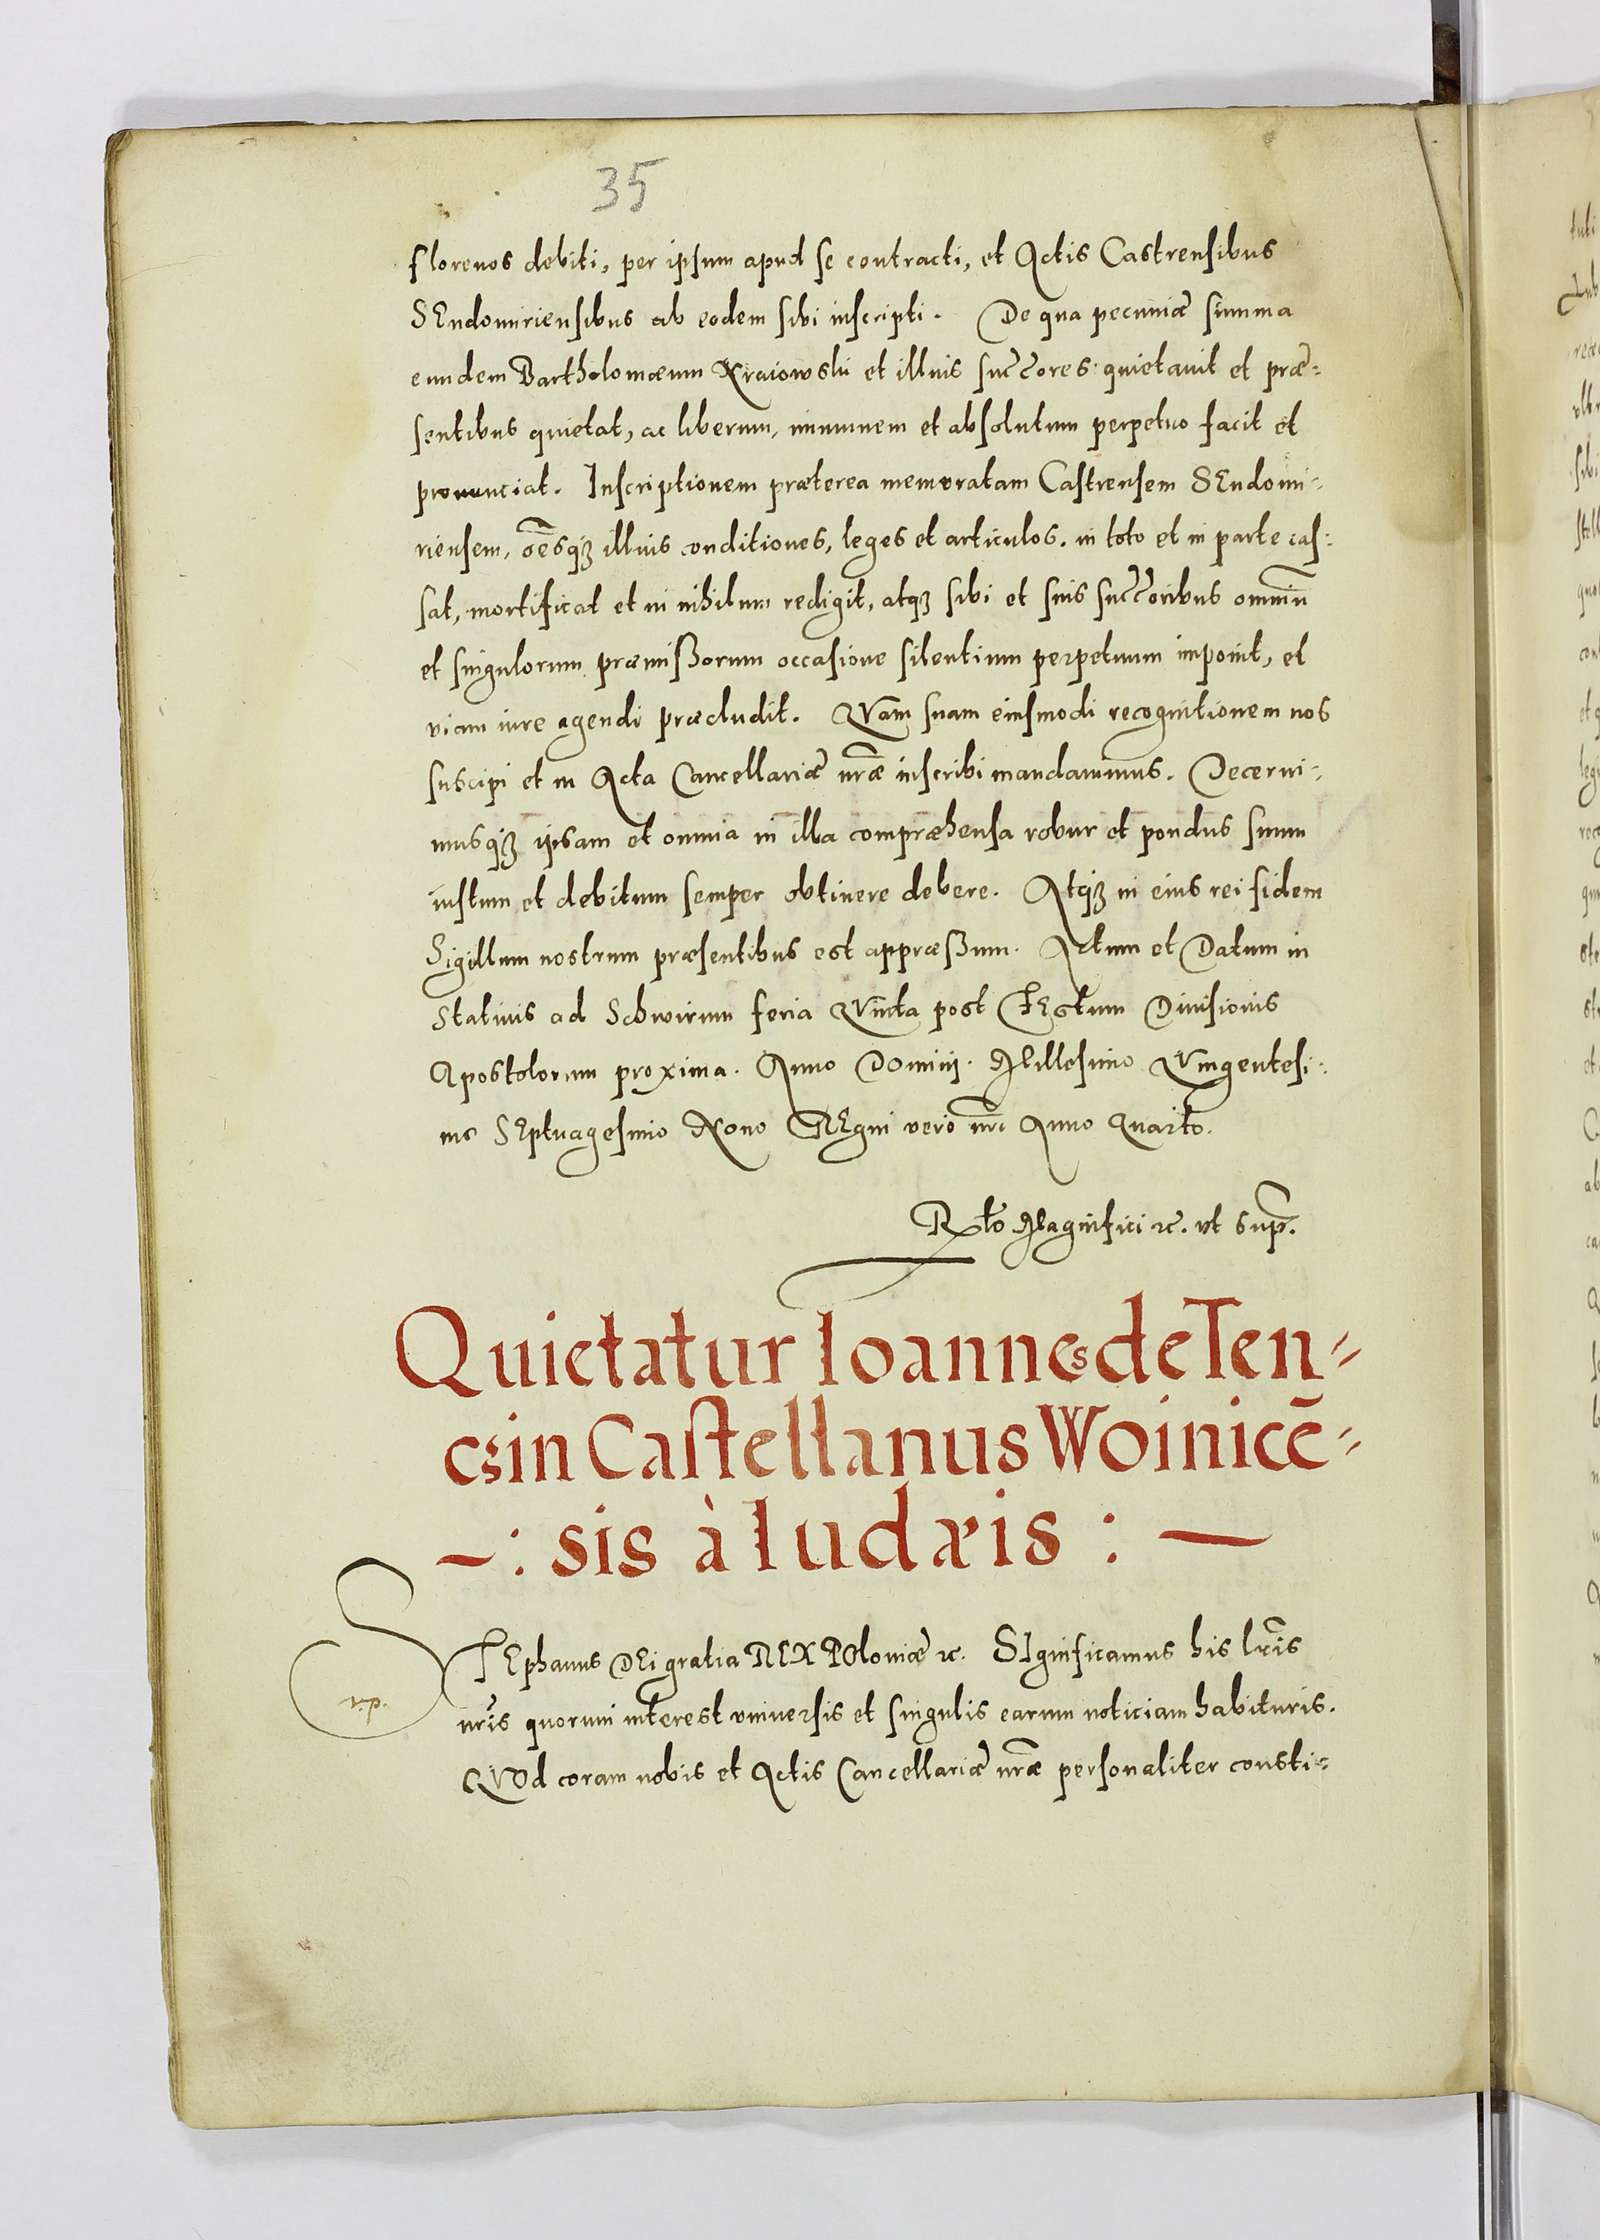 35
florenos debiti, per ipsum apud se contracti, et Actis Castrensibus
SEndomiriensibus ab eodem sibi inscripti. De qua pecuniæ summa
eundem Bartholomæum Kraiowski et illius succ̃ores quietauit et præ-
sentibus quietat, ac liberum, immunem et absolutum perpetuo facit et
pronunciat. Inscriptionem præterea memoratam Castrensem SEndomi-
riensem, oẽsqȝ illius conditiones, leges et articulos. in toto et in parte cas-
sat, mortificat et in nihilum redigit, atqȝ sibi et suis succ̃oribus omniũ
et singulorum præmißorum occasione silentium perpetuum imponit, et
viam iure agendi præcludit. QVam suam eiusmodi recognitionem nos
suscipi et in Acta Cancellariæ nr̃æ inscribi mandauimus. Decerni-
musqȝ ipsam et omnia in illa compræhensa robur et pondus suum
iustum et debitum semper obtinere debere. Atqȝ in eius rei fidem
Sigillum nostrum præsentibus est appræßum. Actum et Datum in
Statiuis ad Schwirum feria QVinta post FEstum Diuisionis
Apostolorum proxima. Anno Domini. Millesimo QVingentesi-
mo SEptuagesimo Nono REgni vero nr̃i Anno Quarto.
Rt̃o Magnifici ꝛc. vt sup̃.
Quietatur Ioannes de Ten-
czin Castellanus Woinicẽ-
-: sis à Iudæis : -
STEphanus DEi gratia REX POloniæ ꝛc. SIgnificamus his lr̃is
nr̃is quorum interest vniuersis et singulis earum noticiam habituris.
QVOd coram nobis et Actis Cancellariæ nr̃æ personaliter consti-